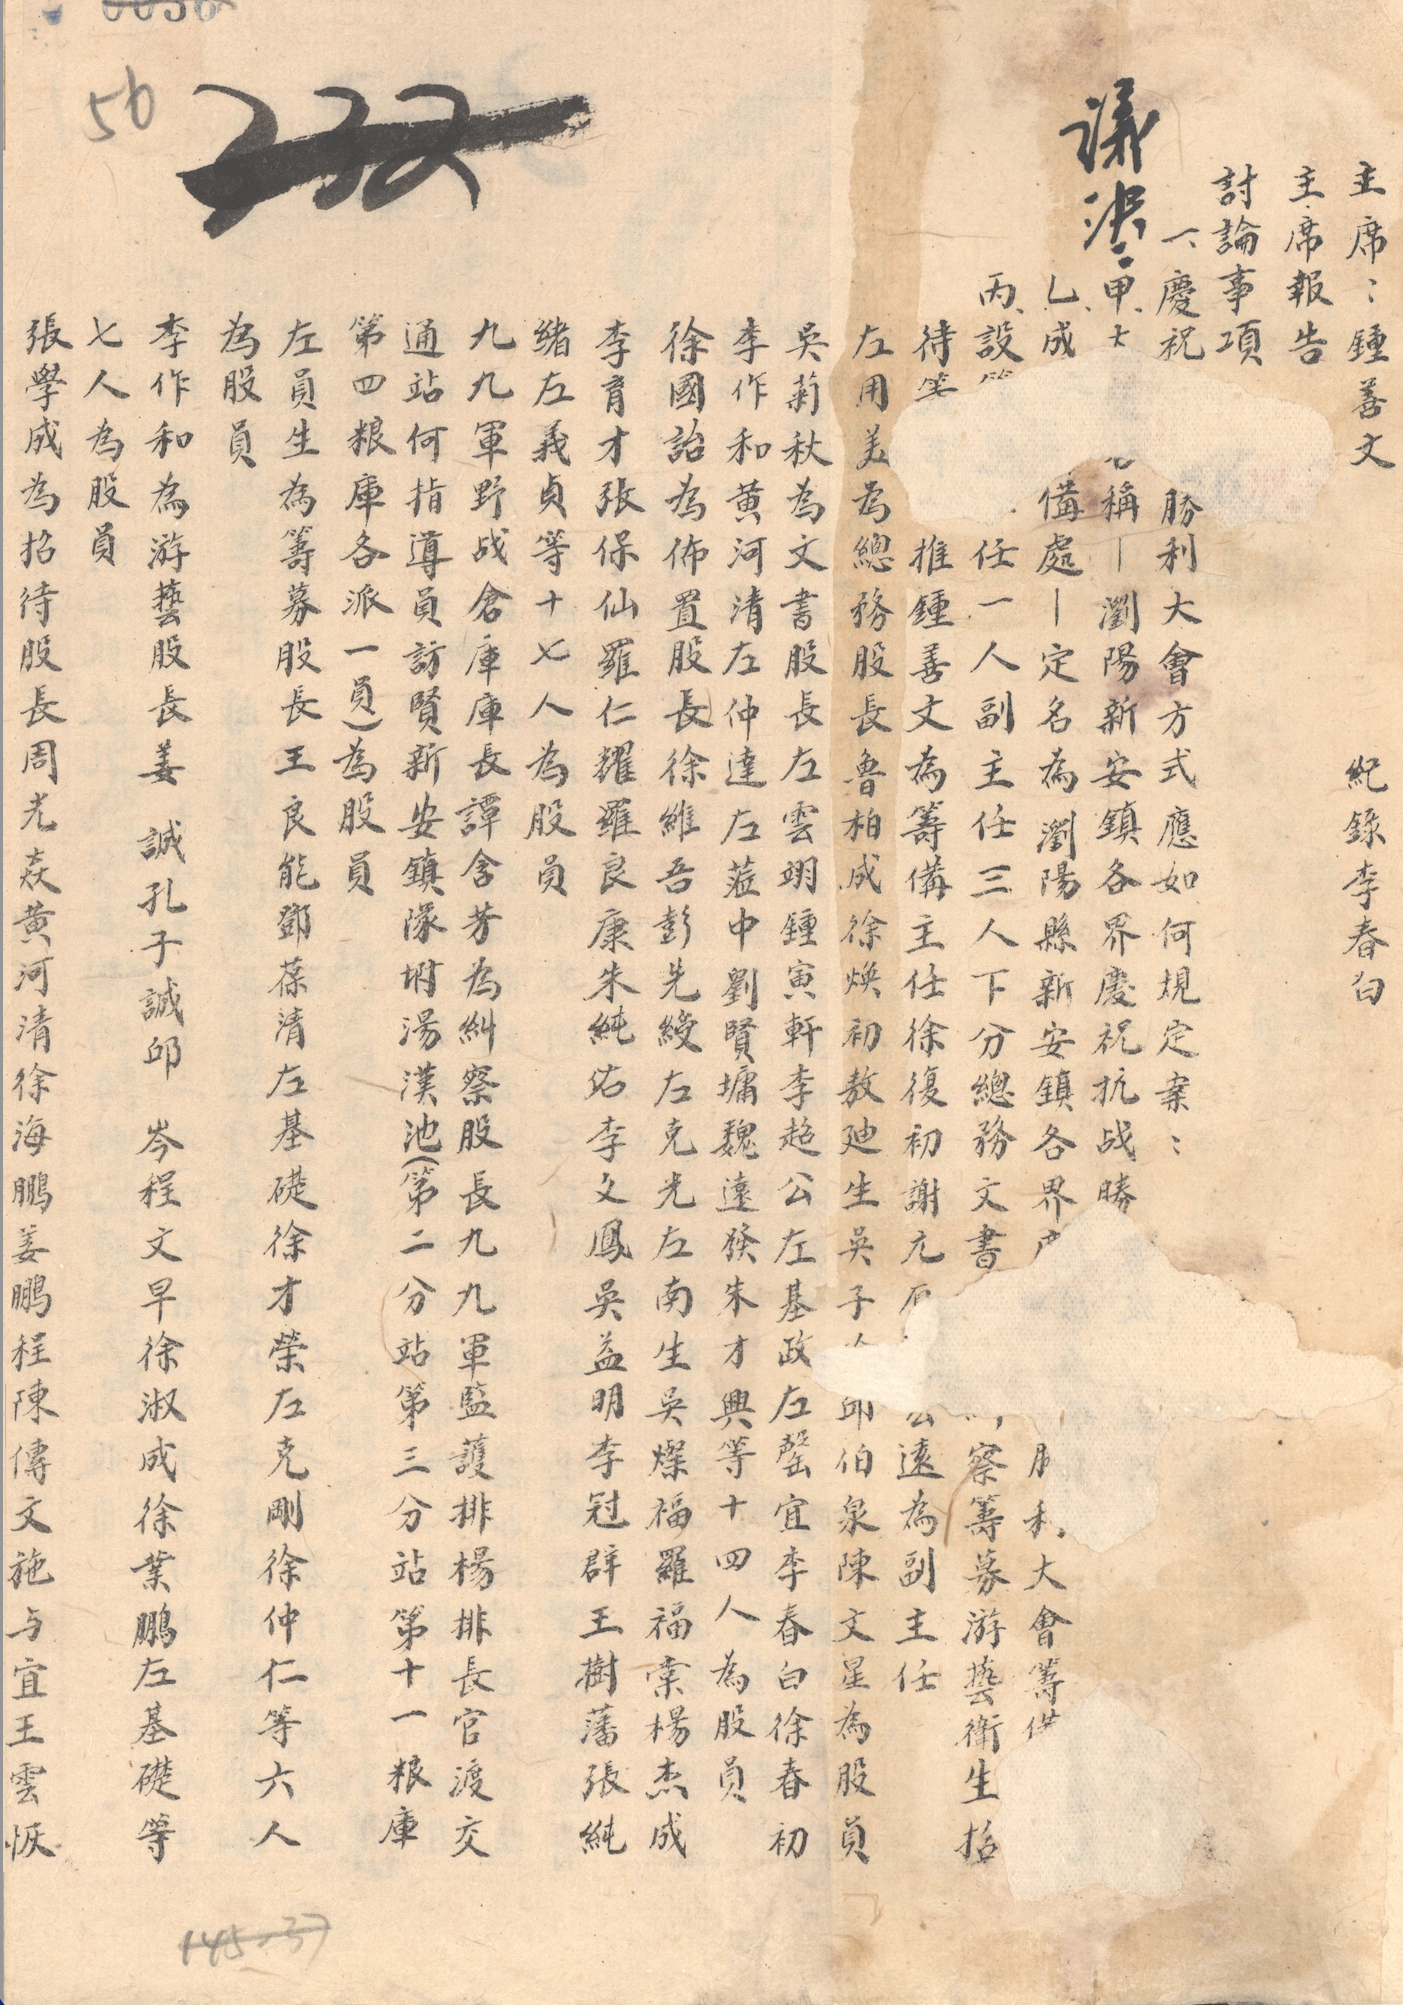 主席：鍾善文 紀錄李春白
主席報告
討論事項
一、慶祝 勝利大會方式應如何規定案：
議決：甲、 稱—瀏陽新安鎮各界慶祝抗战勝
乙、成 備處—定名為瀏陽縣新安鎮各界 勝利大會籌備
丙、設 任一人副主任三人下分總務文書 察籌募游藝衛生招
待等 推鍾善文為籌備主任徐復初謝九 遠為副主任
左用美為總務股長魯柏成徐煥初敖廸生吳子 邱伯泉陳文星為股員
吳菊秋為文書股長左雲翊鍾寅軒李超公左基政左罄宜李春白徐春初
李作和黃河清左仲達左蒞中劉賢墉魏遠發朱才興等十四人為股員
徐國詒為佈置股長徐維吾彭先綬左克光左南生吳燦福羅福棠楊杰成
李育才張保仙羅仁耀羅良康朱純佑李文鳳吳益明李冠群王樹藩張純
緒左義貞等十七人為股員
九九軍野战倉庫庫長譚含芳為糾察股長九九軍監護排楊排長官渡交
通站何指導員訪賢新安鎮隊坿湯漢池(第二分站第三分站第十一粮庫
第四粮庫各派一員)為股員
左員生為籌募股長王良能鄧葆清左基礎徐才榮左克剛徐仲仁等六人
為股員
李作和為游藝股長姜 誠孔子誠邱 岑程文早徐淑成徐業鵬左基礎等
七人為股員
張學成為招待股長周光焱黃河清徐海鵬姜鵬程陳傳文施与宜王雲恢
56
232
145-37